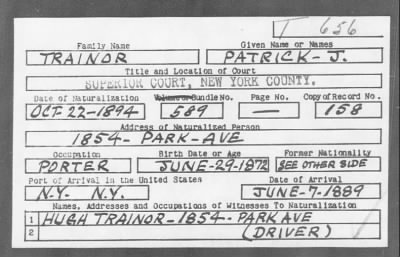 T 656
Family Name Given Name or Names
TRAINOR PATRICK - J.
Title and Location of Court
SUPERIOR COURT, NEW YORK COUNTY.
Date of Naturalization Volume or Bundle No. Page No. Copy of Record No.
OCT-22-1894 589 — 158
Address of Naturalized Person
1854- PARK-AVE
Occupation Birth Date or Age Former Nationality
PORTER JUNE-29-1872 SEE OTHER SIDE
Port of Arrival in the United States Date of Arrival
N.Y. N.Y. JUNE-7-1889
Names, Addresses and Occupations of Witnesses To Naturalization
1 HUGH TRAINOR-1854-PARK AVE
2 (DRIVER)